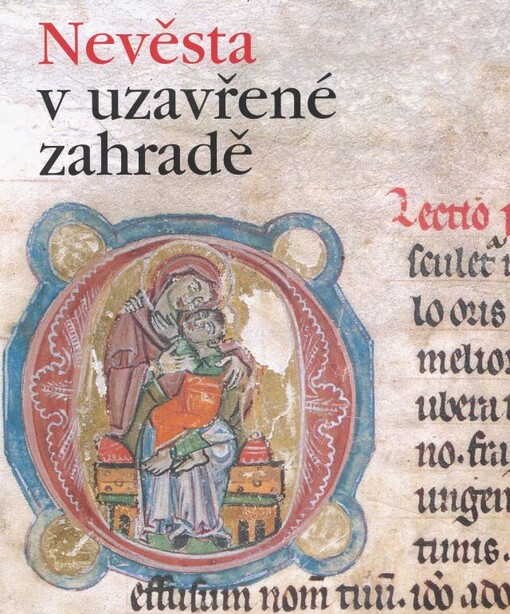 Nevěsta
v uzavřené
zahradě
Lectio p
sculet̃
lo oris
melior
ubera
no. fra
ungen
timis.
effusum nom̃ tuũ. iđo ado